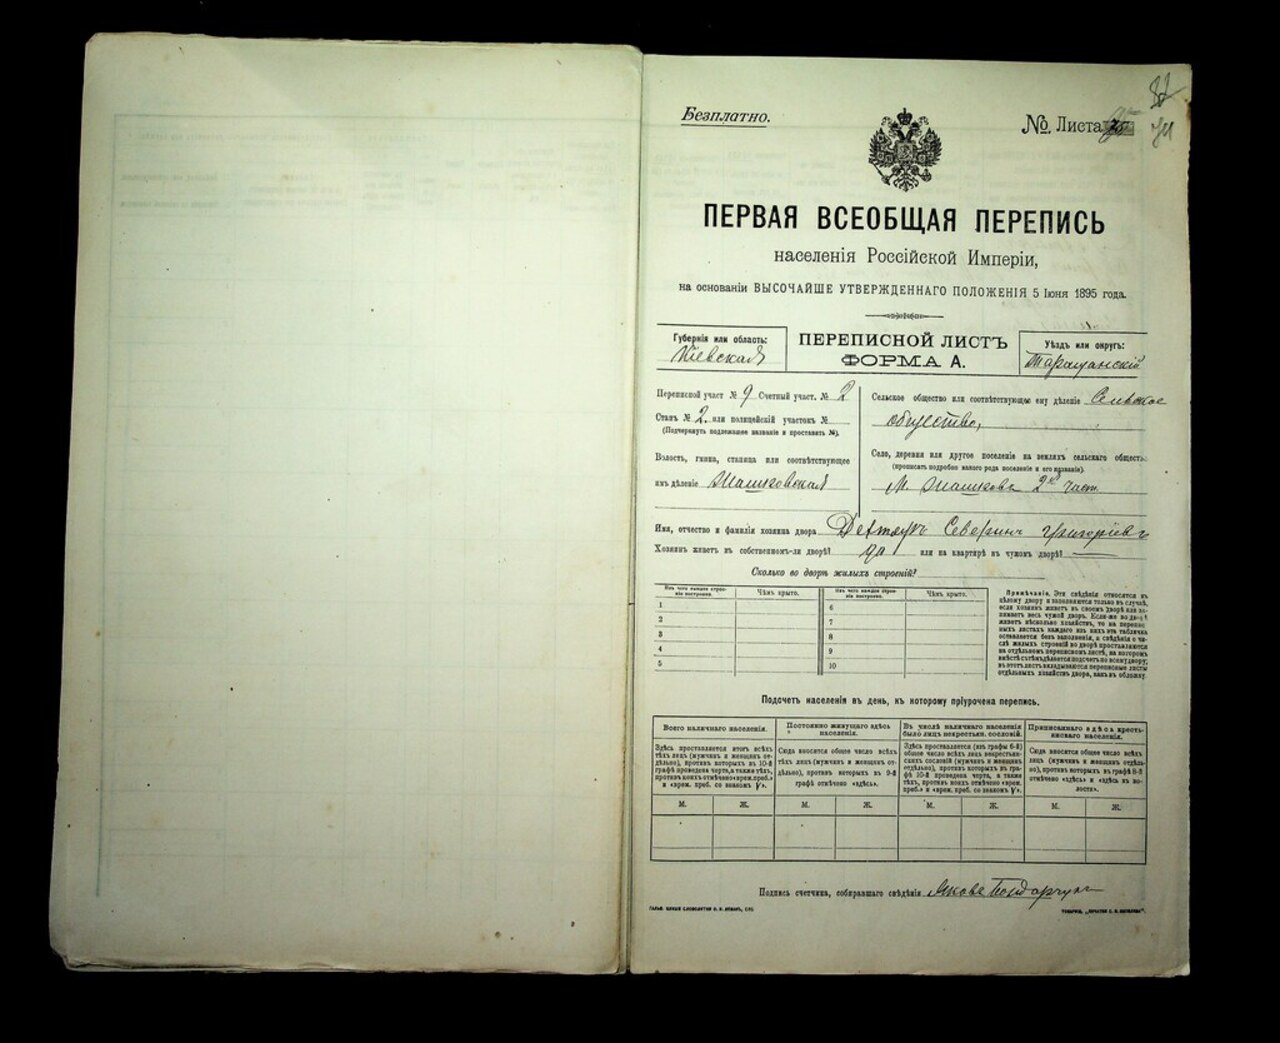 Безплатно.
№ Листа
ПЕРВАЯ ВСЕОБЩАЯ ПЕРЕПИСЬ
населенія Россійской Имперіи,
на основаніи ВЫСОЧАЙШЕ УТВЕРЖДЕННАГО ПОЛОЖЕНІЯ 5 Іюня 1895 года.
Губернія или область:
Кіевская
ПЕРЕПИСНОЙ ЛИСТЪ
ФОРМА А.
Уѣздъ или округъ:
Таращанскій
Переписной участ № 9 Счетный участ. № 2
Станъ № 2. или полицейскій участокъ №
(Подчеркнуть надлежащее названіе и проставить №).
Волость, гмина, станица или соотвѣтствующее
имъ дѣленіе Жашковская
Сельское общество или соотвѣтствующее ему дѣленіе Сельское
общество,
Село, деревня или другое поселеніе на земляхъ сельскаго обществ
(прописать подробно какого рода поселеніе и его названіе).
М. Жашковъ 2й част.
Имя, отчество и фамилія хозяина двора Северинъ Григоріевъ
Хозяинъ живетъ въ собственномъ-ли дворѣ? да или на квартирѣ въ чужомъ дворѣ?
Сколько во дворѣ жилыхъ строеній?
Изъ чего каждое строеніе построено.
Чѣмъ крыто.
Изъ чего каждое строеніе построено.
Чѣмъ крыто.
1 6
2 7
3 8
4 9
5 10
Примѣчаніе. Эти свѣдѣнія относятся къ
цѣлому двору и заполняются только въ случаѣ,
если хозяинъ живетъ въ своемъ дворѣ или
нимаетъ весь чужой дворъ. Если-же во дворѣ
живетъ нѣсколько хозяйствъ, то на перепис
ныхъ листахъ каждаго изъ нихъ эта табличка
оставляется безъ заполненія, а свѣдѣнія о чи
слѣ жилыхъ строеній во дворѣ проставляются
на отдѣльномъ переписномъ листѣ, на которомъ
вмѣстѣ съ тѣмъ дѣлается подсчетъ по всему двору;
въ этотъ листъ вкладываются переписные листы
отдѣльныхъ хозяйствъ двора, какъ въ обложку.
Подсчетъ населенія въ день, къ которому пріурочена перепись.
Всего наличнаго населенія.
Здѣсь проставляется итогъ всѣхъ
тѣхъ лицъ (мужчинъ и женщинъ от-
дѣльно), противъ которыхъ въ 10-й
графѣ проведена черта, а также тѣхъ,
противъ коихъ отмѣчено «врем. преб.»
и «врем. преб. со знакомъ V».
Постоянно живущаго здѣсь
населенія.
Сюда вносится общее число всѣхъ
тѣхъ лицъ (мужчинъ и женщинъ от-
дѣльно), противъ которыхъ въ 9-й
графѣ отмѣчено «здѣсь».
Въ числѣ наличнаго населенія
было лицъ некрестьян. сословій.
Здѣсь проставляется (изъ графы 6-й)
общее число всѣхъ лицъ некрестьян-
скихъ сословій (мужчинъ и женщинъ
отдѣльно), противъ которыхъ въ графѣ
10-й проведена черта, а также
тѣхъ, противъ коихъ отмѣчено «врем.
преб.» и «врем. преб. со знакомъ V».
Приписаннаго здѣсь кресть-
янскаго населенія.
Сюда вносится общее число всѣхъ
лицъ (мужчинъ и женщинъ отдѣль-
но), противъ которыхъ въ графѣ 8-й
отмѣчено «здѣсь» и «здѣсь въ во-
лости».
М. Ж. М. Ж. М. Ж. М. Ж.
Подпись счетчика, собиравшаго свѣдѣнія Яковъ Бондарчукъ